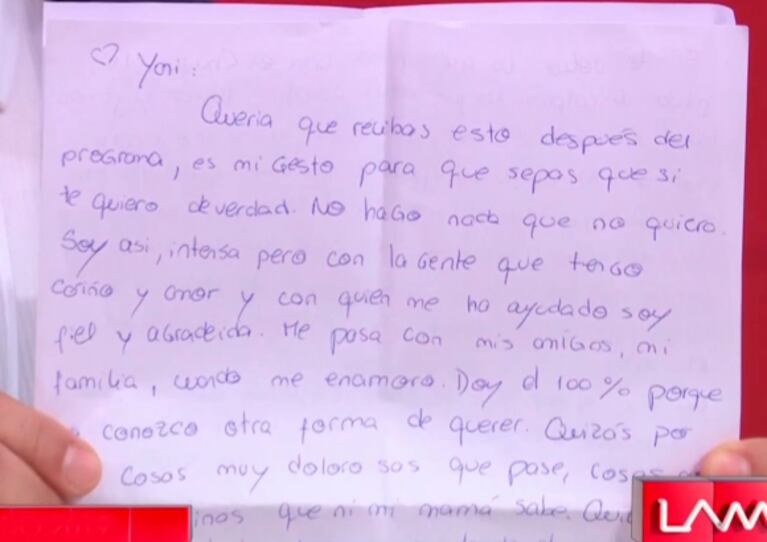 ♡ Yoni:
Queria que recibas esto después del
programa, es mi Gesto para que sepas que si
te quiero de verdad. No hago nada que no quiero.
Soy asi, intensa pero con la Gente que tengo
cariño y amor y con quien me ha ayudado soy
fiel y agradecida. Me pasa con mis amigos, mi
familia, cuando me enamoro. Doy el 100% porque
conozco otra forma de querer. Quizás por
cosas muy dolorosas que pase, cosas
que ni mi mamá sabe.
LAM